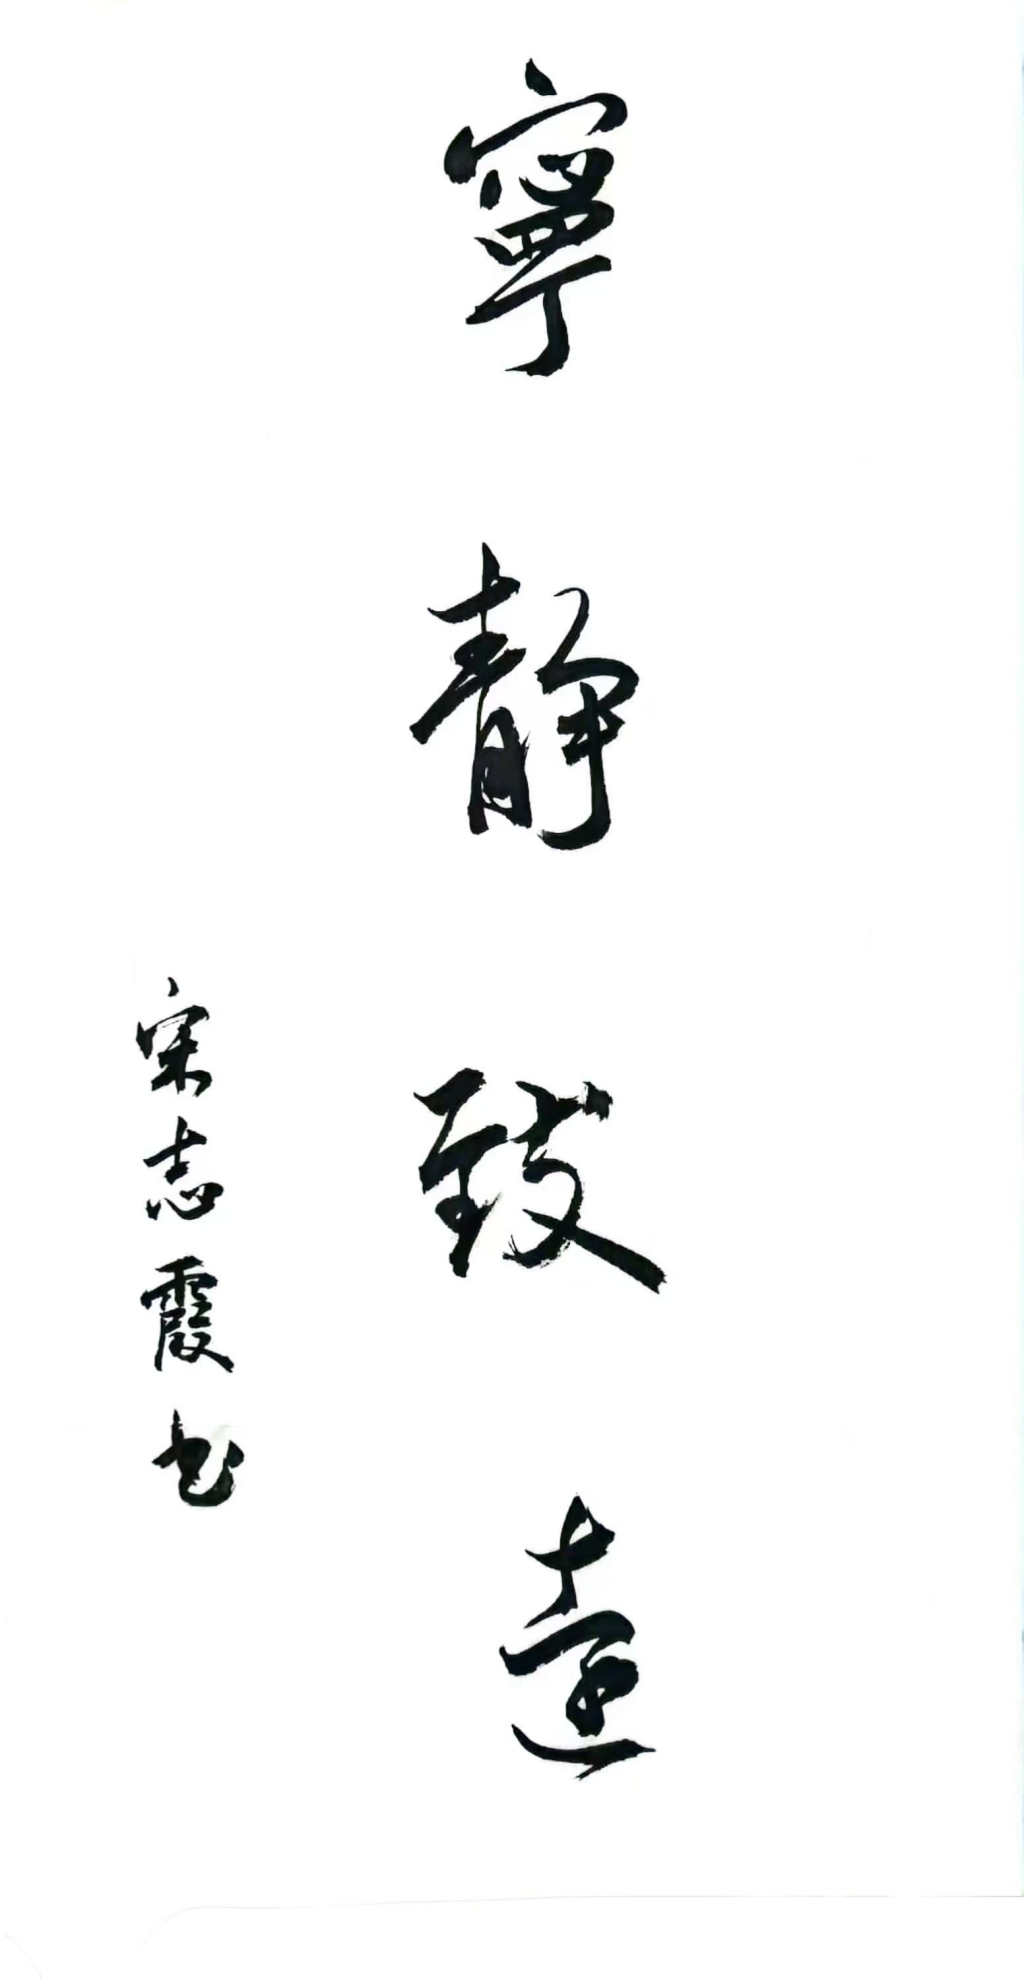 寧靜致遠
宋志霞书